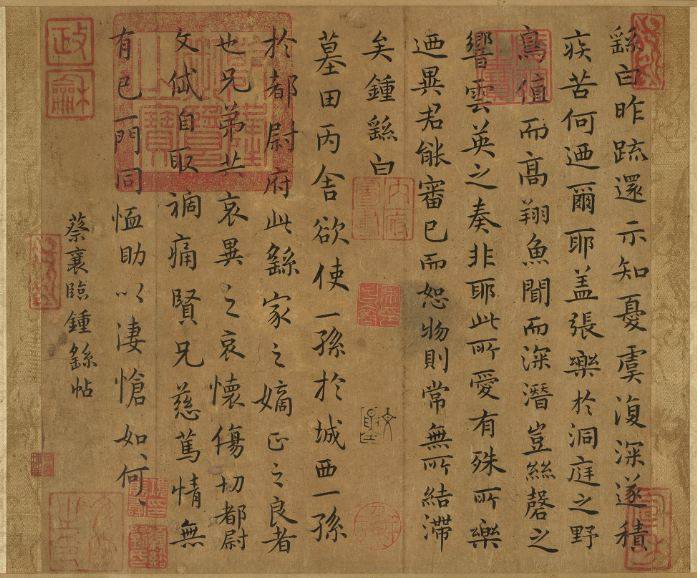 繇白昨疏還示知憂虞復深遂積
疾苦何迺爾耶蓋張樂於洞庭之野
鳥值而高翔魚聞而深潛豈絲磬之
響雲英之奏非耶此所愛有殊所樂
迺異君能審己而恕物則常無所結滯
矣鍾繇白
墓田丙舍欲使一孫於城西一孫
於都尉府此繇家之嫡正之良者
也兄弟共哀異之哀懷傷切都尉
文岱自取禍痛賢兄慈篤情無
有已一門同恤助以淒愴如何
蔡襄臨鍾繇帖
政和